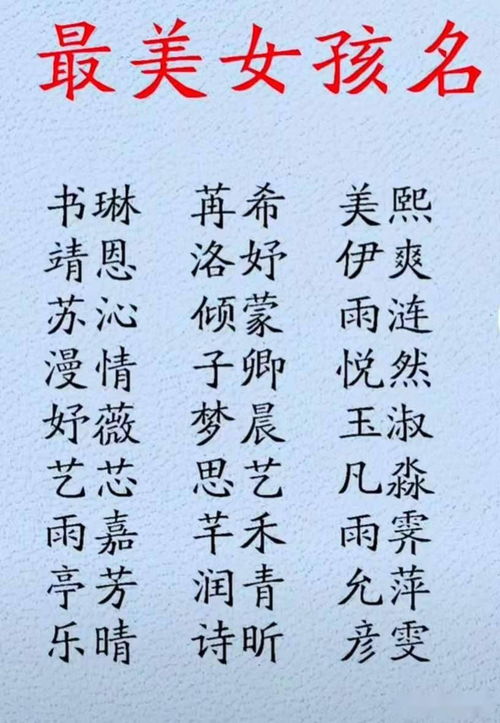 最美女孩名
书琳 苒希 美熙
靖恩 洛妤 伊爽
苏沁 倾蒙 雨涟
漫情 子卿 悦然
妤薇 梦晨 玉淑
艺芯 思艺 凡淼
雨嘉 芊禾 雨霁
亭芳 润青 允萍
乐晴 诗昕 彦雯